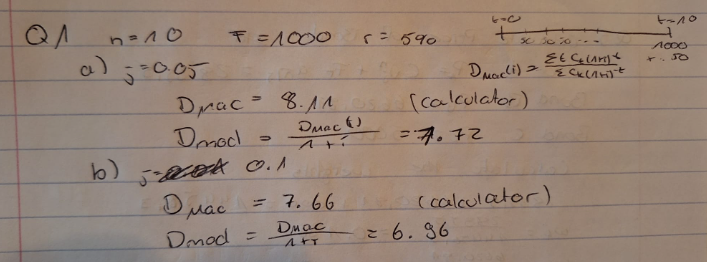 Q1 n=10 F=1000 r=5%
t=0 t=10
50 50 50 ...
1000
+ 50
a) j=0.05 DMac(i) = Σt Ct(1+i)^-t / Σ Ct(1+i)^-t
DMac = 8.11 (calculator)
Dmod = DMac(i) / 1+i = 7.72
b) j= 0.1
DMac = 7.66 (calculator)
Dmod = DMac / 1+i = 6.96